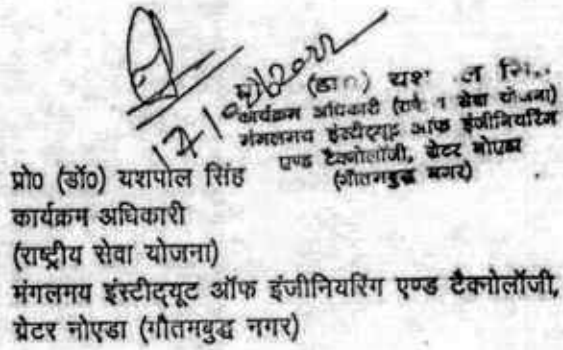 (डा०)
कार्यक्रम अधिकारी सेवा योजना)
मंगलमय इंस्टीट्यूट ऑफ इंजीनियरिंग
एण्ड टैक्नोलॉजी, ग्रेटर नोएडा
(गौतमबुद्ध नगर)
प्रो० (डॉ०) यशपोल सिंह
कार्यक्रम अधिकारी
(राष्ट्रीय सेवा योजना)
मंगलमय इंस्टीट्यूट ऑफ इंजीनियरिंग एण्ड टैक्नोलॉजी,
ग्रेटर नोएडा (गौतमबुद्ध नगर)